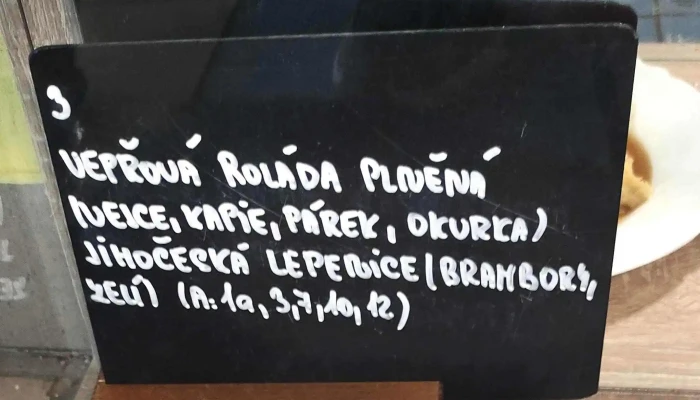 3
VEPŘOVÁ ROLÁDA PLNĚNÁ
(VEJCE, KAPIE, PÁREK, OKURKA)
JIHOČESKÁ LEPENICE (BRAMBORY,
ZELÍ) (A: 1a, 3, 7, 10, 12)